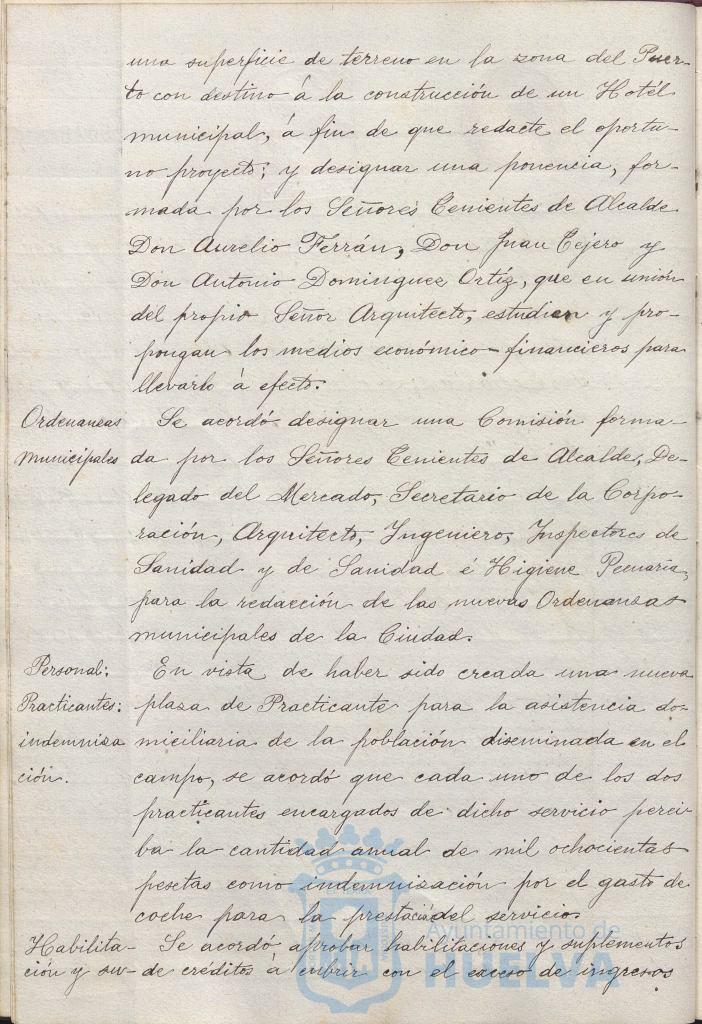 una superficie de terreno en la zona del Puer-
to con destino á la construcción de un Hotél
municipal, á fin de que redacte el oportu-
no proyecto; y designar una ponencia, for-
mada por los Señores Tenientes de Alcalde
Don Aurelio Ferrán, Don Juan Tejero y
Don Antonio Dominguez Ortíz, que en unión
del propio Señor Arquitecto, estudien y pro-
pongan los medios económico-financieros para
llevarlo á efecto.
Ordenanzas
municipales
Se acordó designar una Comisión forma-
da por los Señores Tenientes de Alcalde, De-
legado del Mercado, Secretario de la Corpo-
ración, Arquitecto, Ingeniero, Inspectores de
Sanidad y de Sanidad é Higiene Pecuaria,
para la redacción de las nuevas Ordenanzas
municipales de la Ciudad.
Personal:
Practicantes:
indemniza
ción.
En vista de haber sido creada una nueva
plaza de Practicante para la asistencia do-
miciliaria de la población diseminada en el
campo, se acordó que cada uno de los dos
practicantes encargados de dicho servicio perci-
ba la cantidad anual de mil ochocientas
pesetas como indemnización por el gasto de
coche para la prestación del servicio.
Habilita-
ción y su-
Se acordó aprobar habilitaciones y suplementos
de créditos á cubrir con el exceso de ingresos
Ayuntamiento de
HUELVA